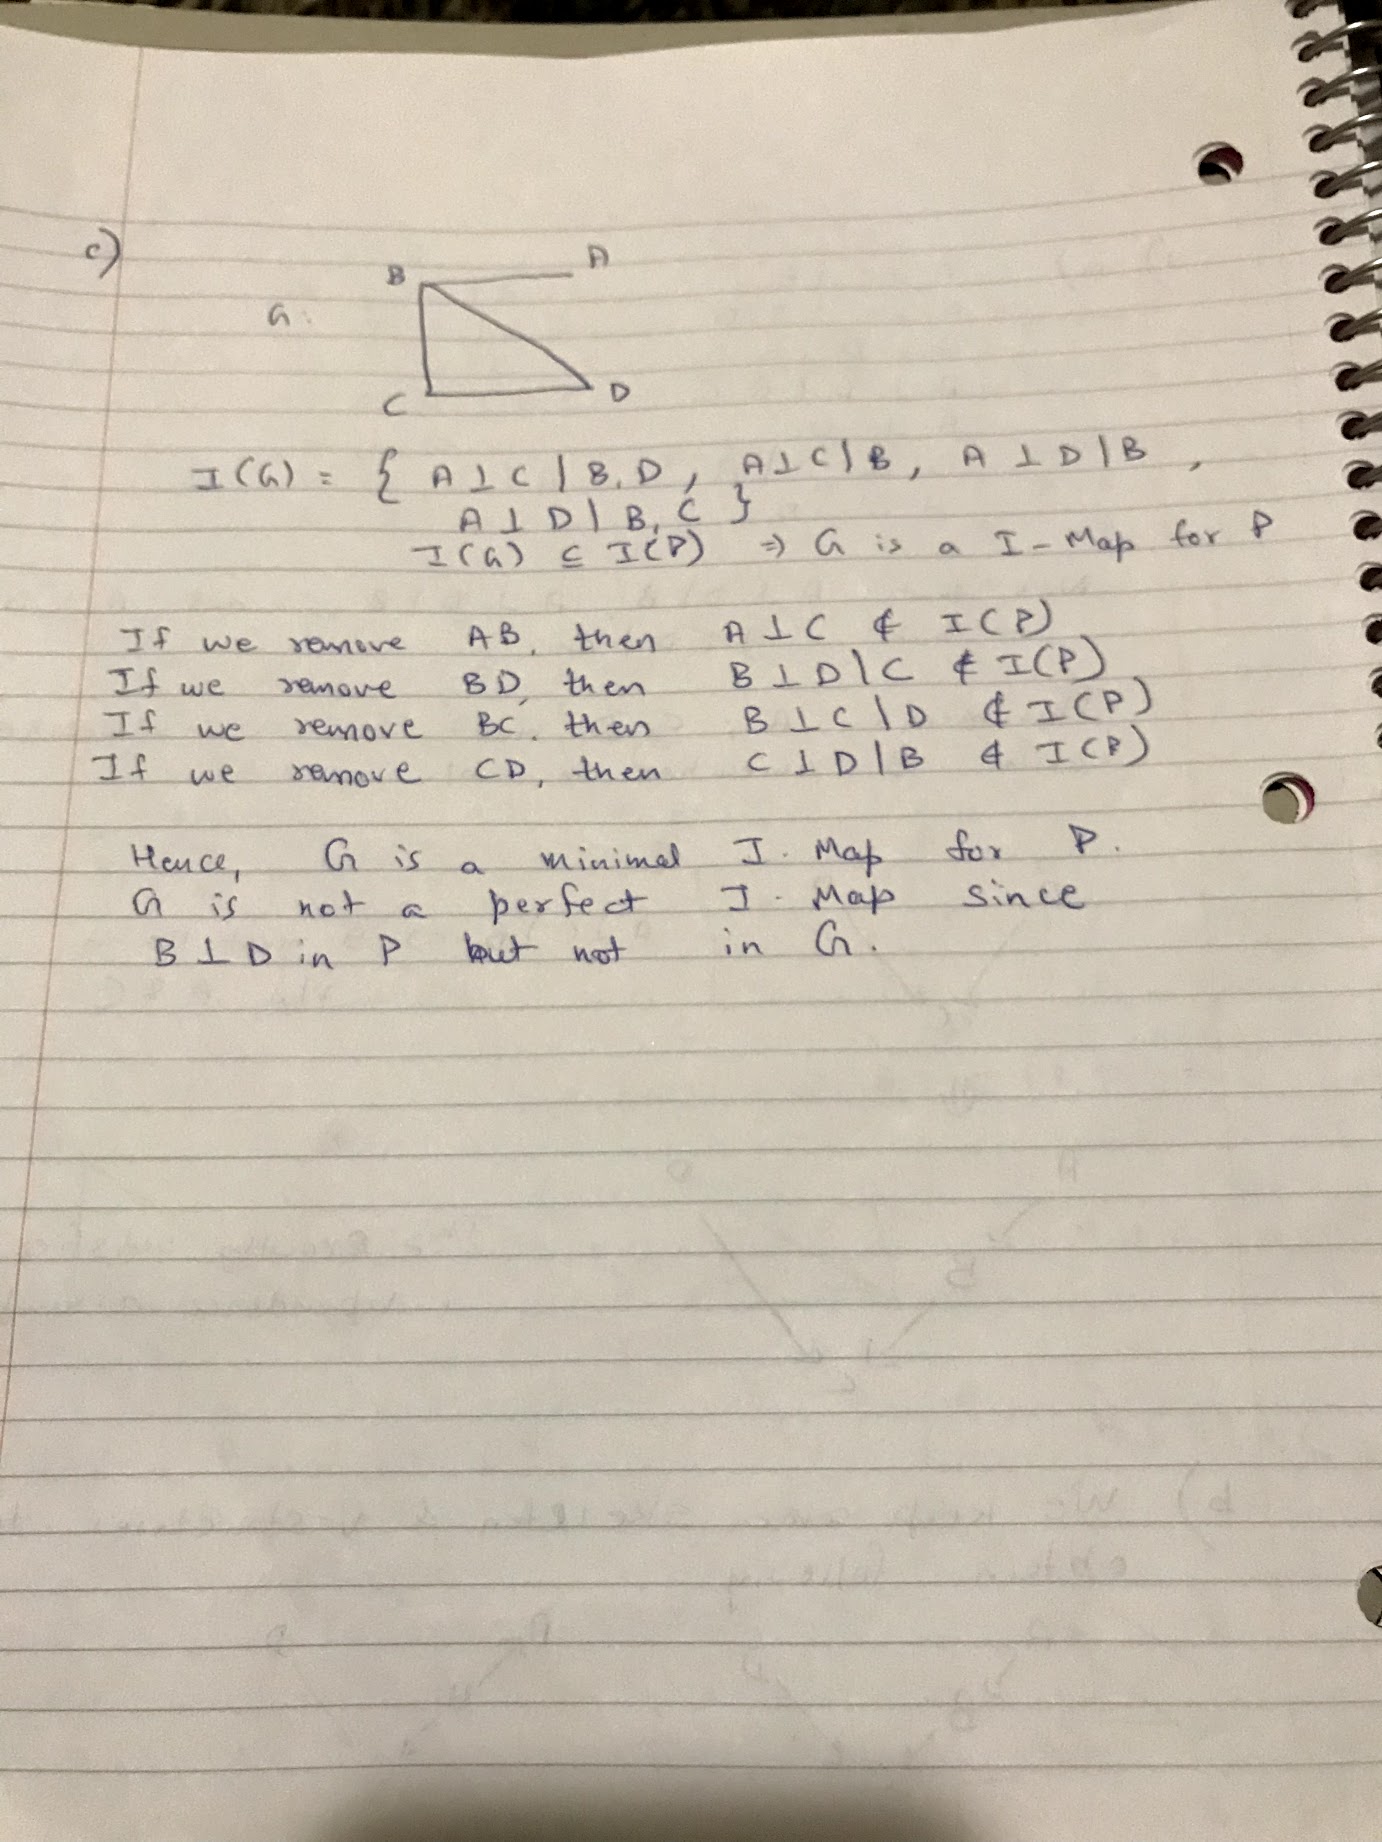 c)
B A
G:
C D
I(G) = { A⊥C | B,D , A⊥C | B , A ⊥ D | B ,
A ⊥ D | B, C }
I(G) ⊆ I(P) ⇒ G is a I-Map for P
If we remove AB, then A⊥C ∉ I(P)
If we remove BD, then B⊥D|C ∉ I(P)
If we remove BC, then B⊥C|D ∉ I(P)
If we remove CD, then C⊥D|B ∉ I(P)
Hence, G is a minimal I-Map for P.
G is not a perfect I-Map since
B⊥D in P but not in G.